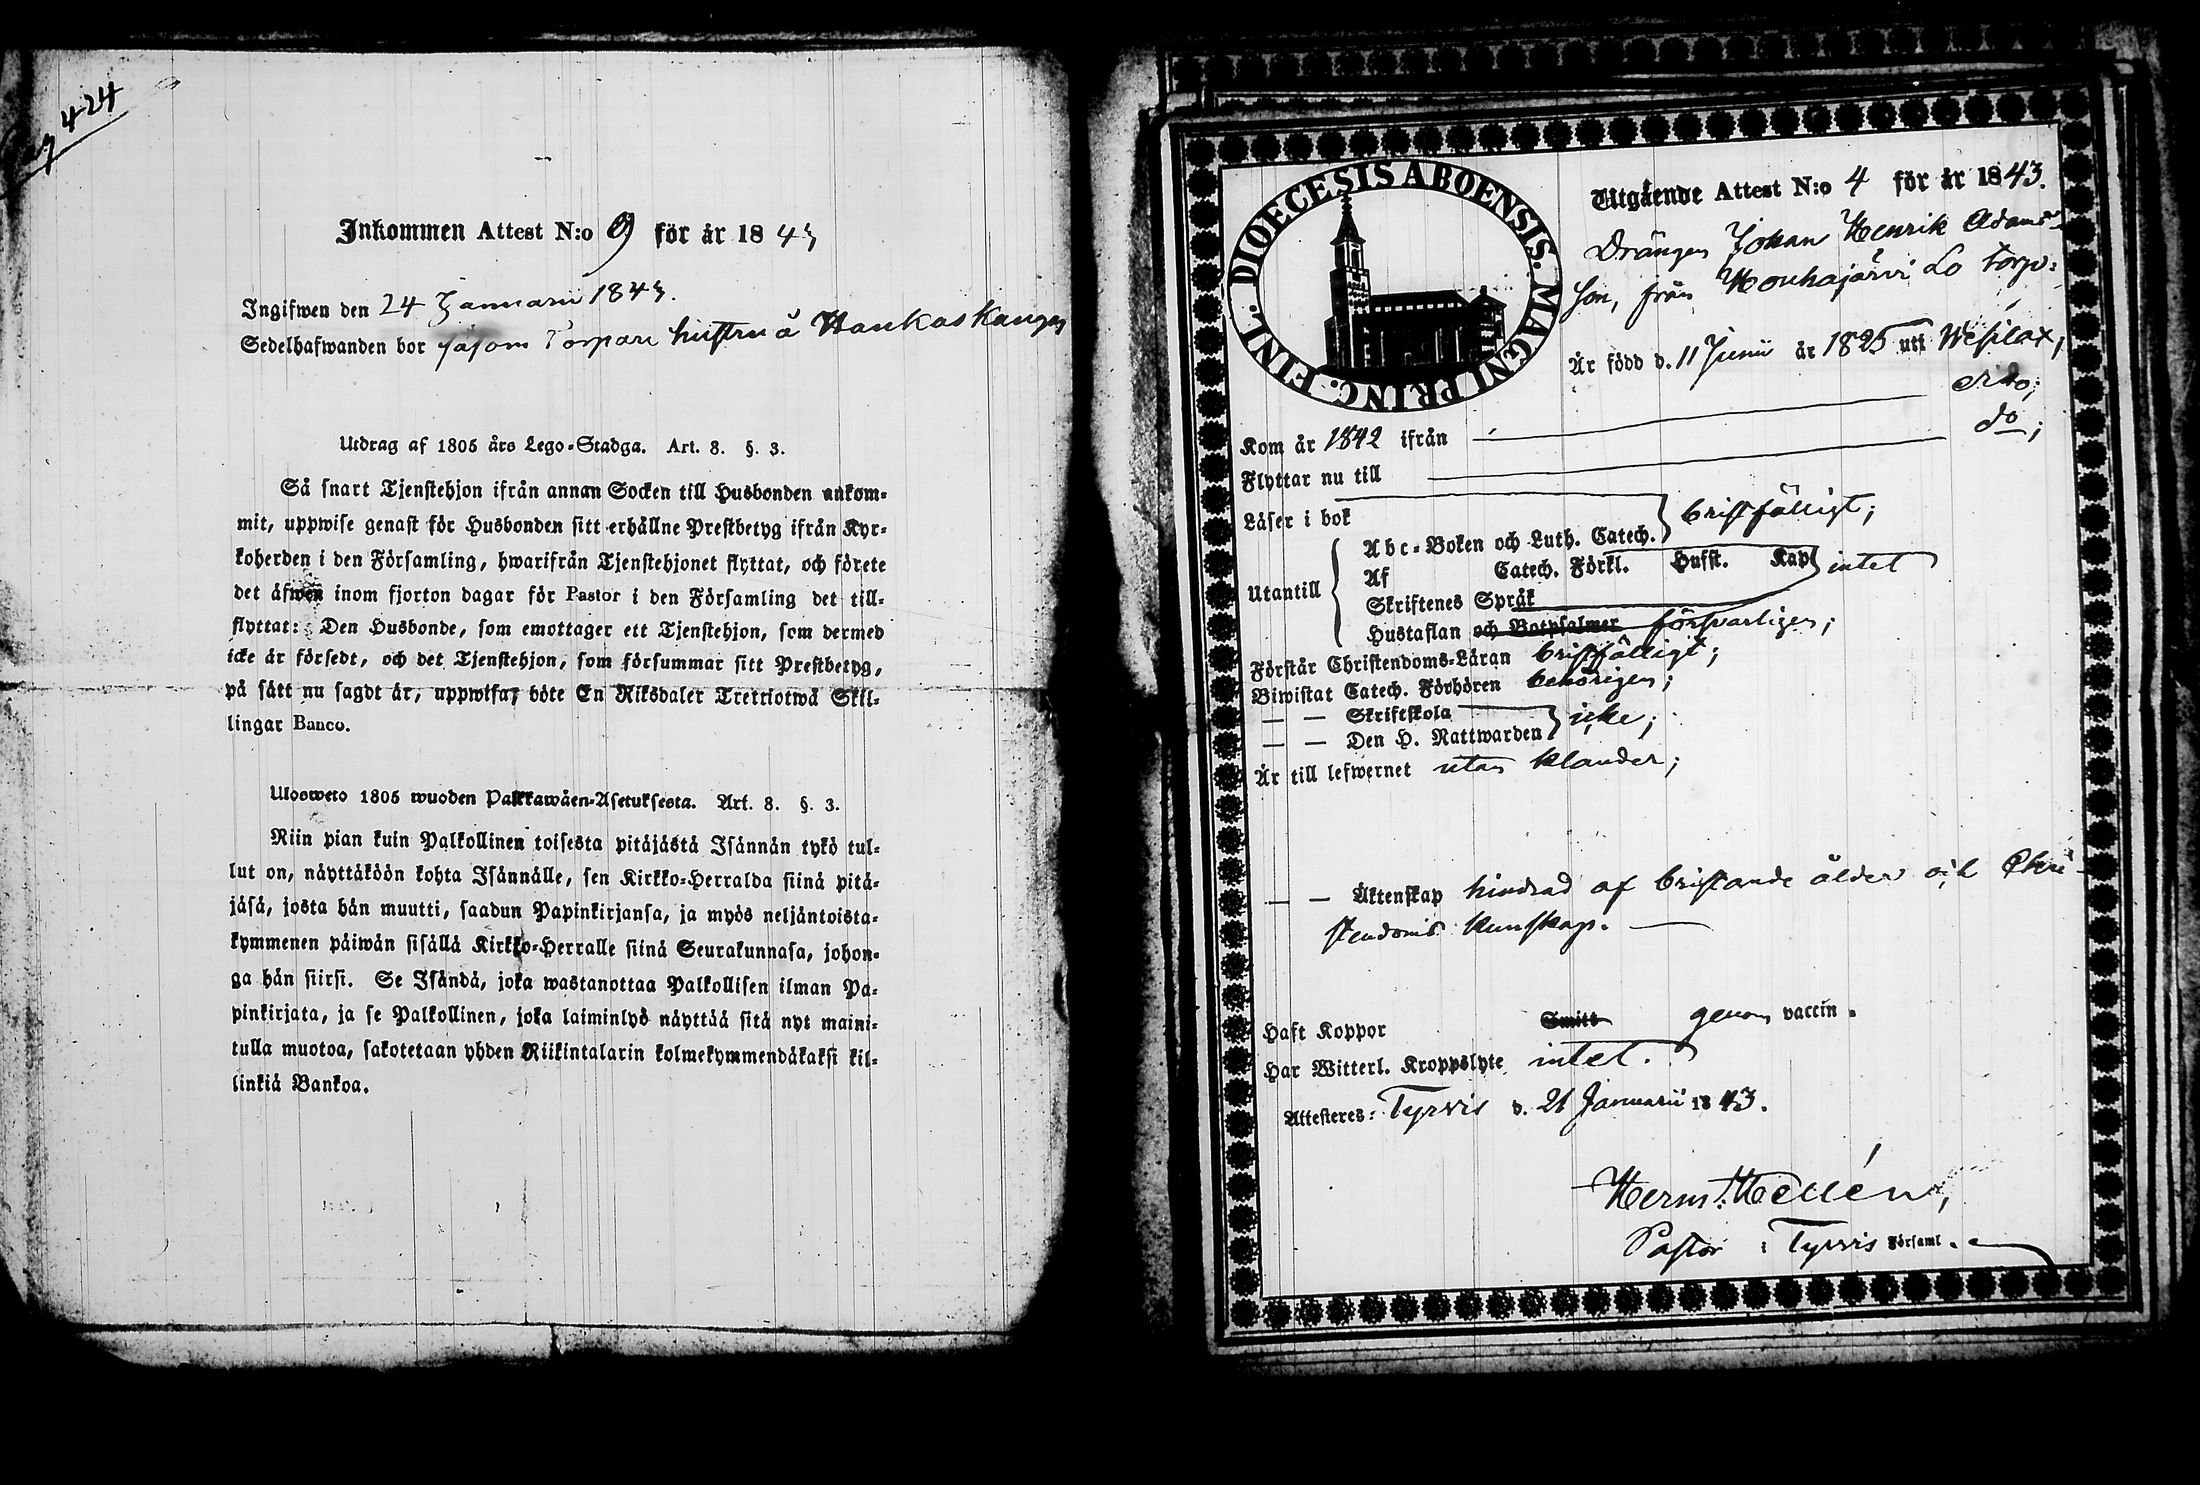 424
Inkommen Attest N:o 9 för år 1843
Ingifwen den 24 Januarii 1843.
Sedelhafwanden bor såsom Torpare hustru å Haukaskangas
Utdrag af 1805 års Lego-Stadga. Art. 8. §. 3.
Så snart Tjenstehjon ifrån annan Socken till Husbonden ankom-
mit, uppwise genast för Husbonden sitt erhållne Prestbetyg ifrån Kyr-
koherden i den Församling, hwarifrån Tjenstehjonet flyttat, och förete
det äfwen inom fjorton dagar för Pastor i den Församling det till-
flyttat: Den Husbonde, som emottager ett Tjenstehjon, som dermed
icke är försedt, och det Tjenstehjon, som försummar sitt Prestbetyg,
på sätt nu sagdt är, uppwisa, böte En Riksdaler Trettiotwå Skil-
lingar Banco.
Ulosweto 1805 wuoden Palkkawäen-Asetuksesta. Art. 8. §. 3.
Niin pian kuin Palkollinen toisesta pitäjästä Isännän tykö tul-
lut on, näyttäköön kohta Isännälle, sen Kirkko-Herralda siinä pitä-
jäsä, josta hän muutti, saadun Papinkirjansa, ja myös neljäntoista-
kymmenen päiwän sisällä Kirkko-Herralle siinä Seurakunnasa, johon-
ga hän siirsi. Se Isändä, joka wastanottaa Palkollisen ilman Pa-
pinkirjata, ja se Palkollinen, joka laiminlyö näyttää sitä nyt maini-
tulla muotoa, sakotetaan yhden Riikintalarin kolmekymmendäkaksi kil-
linkiä Bankoa.
DIOECESIS ABOENSIS. MAGNI PRINC. FINL.
Utgående Attest N:o 4 för år 1843.
Drängen Johan Henrik Adams-
son, från Houhajärvi Lo torp:
Är född d. 11 Junii år 1825 uti Wesilax,
do;
Kom år 1842 ifrån do;
Flyttar nu till
Läser i bok bristfälligt;
Utantill Abc-Boken och Luth. Catech.
Af Catech. Förkl. Hufst. Kap intet
Skriftenes Språk
Hustaflan och Botpsalmer försvarligen;
Förstår Christendoms-Läran bristfälligt;
Biwistat Catech. Förhören behörigen;
— — Skriftskola icke;
— — Den H. Nattwarden
Är till lefwernet utan klander;
— — Äktenskap hindrad af bristande ålder och Chri-
stendoms kunskap.
Haft Koppor Smitt genom vaccin.
Har Witterl. Kroppslyte intet.
Attesteres: Tyrvis d. 21 Januarii 1843.
Herm. Hellén,
Pastor i Tyrvis Församl.